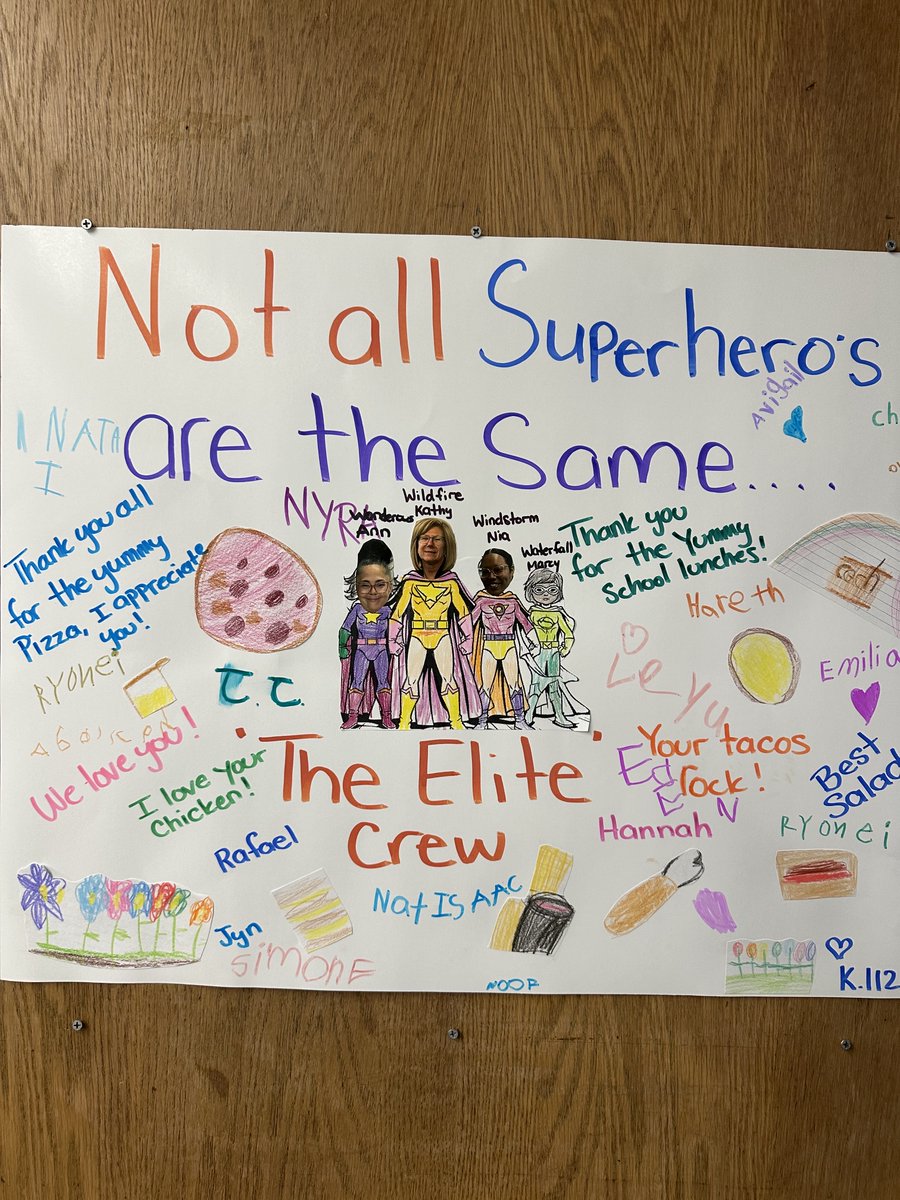 Not all Superhero's
Avigail
ch
I NATA
I
are the Same....
NYRA
Wonderous
Ann
Wildfire
Kathy
Windstorm
Nia
Waterfall
Marcy
Thank you all
for the yummy
Pizza, I appreciate
you!
Thank you
for the Yummy
School lunches!
Hareth
RYOnei
T.C.
Ley
Emilia
We love you!
I love your
Chicken!
"The Elite"
Crew
Your tacos
rock!
Best
Salad
Hannah
RYOnei
Rafael
Nat ISAAC
Jyn
SimONE
NOOR
K.112